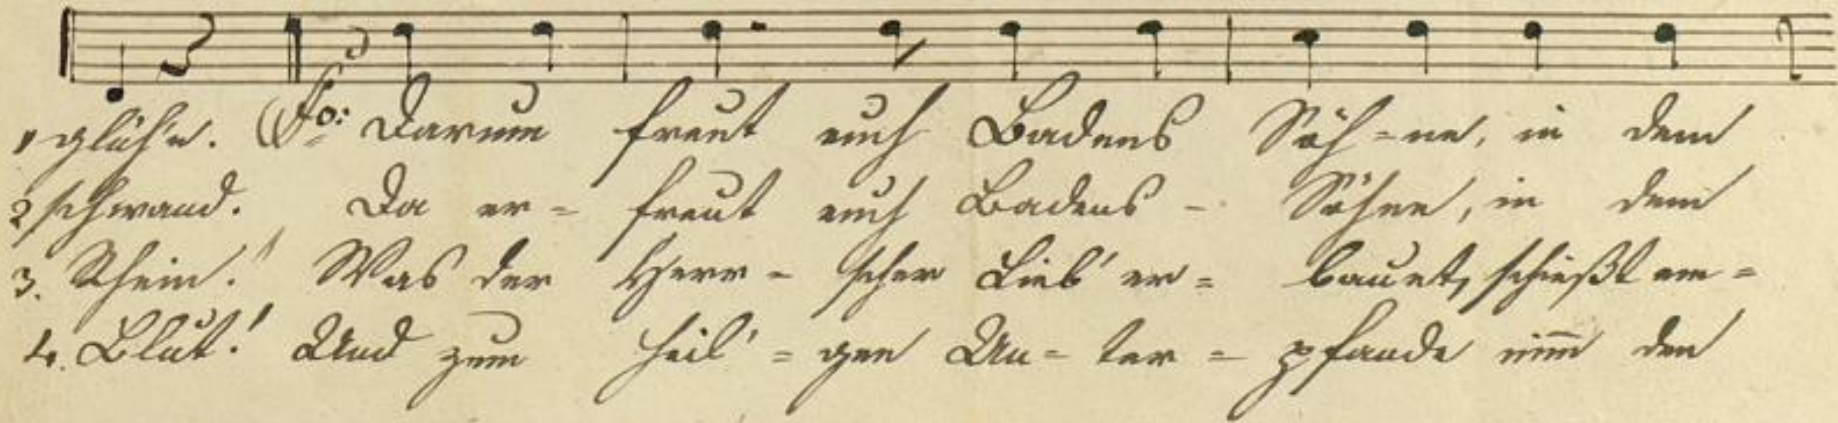 1 glüh'n. (Fo: Darum freut euch Badens Söh-ne, in dem
2 schwand. Da er- freut euch Badens- Söhne, in dem
3. Rhein! Was der Herr- scher Lieb' er- bauet, schießt em-
4. Blut! Und zum heil'- gen Un- ter- pfande nim̄ den